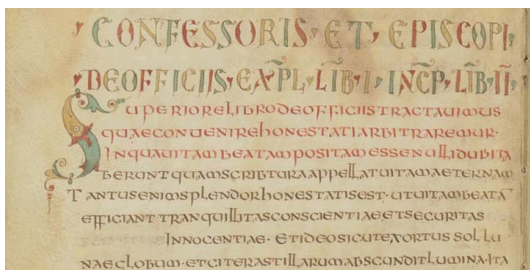 CONFESSORIS · ET · EPISCOPI
DEOFFICIIS · EXPL · LIB · I · INCP · LIB · II ·
SUPERIORELIBRODEOFFICIISTRACTAUIMUS
QUAECONUENIREHONESTATIARBITRAREMUR ·
INQUAUITAMBEATAMPOSITAMESSENULLIDUBITA
BERUNTQUAMSCRIPTURAAPPELLATUITAMAETERNAM
TANTUSENIMSPLENDORHONESTATISEST · UTUITAMBEATA
EFFICIANT TRANQUILLITASCONSCIENTIAEETSECURITAS
INNOCENTIAE · ETIDEOSICUTEXORTUS SOL LU
NAEGLOBUM · ETCITERASTILLARUMABSCUNDITLUMINA · ITA